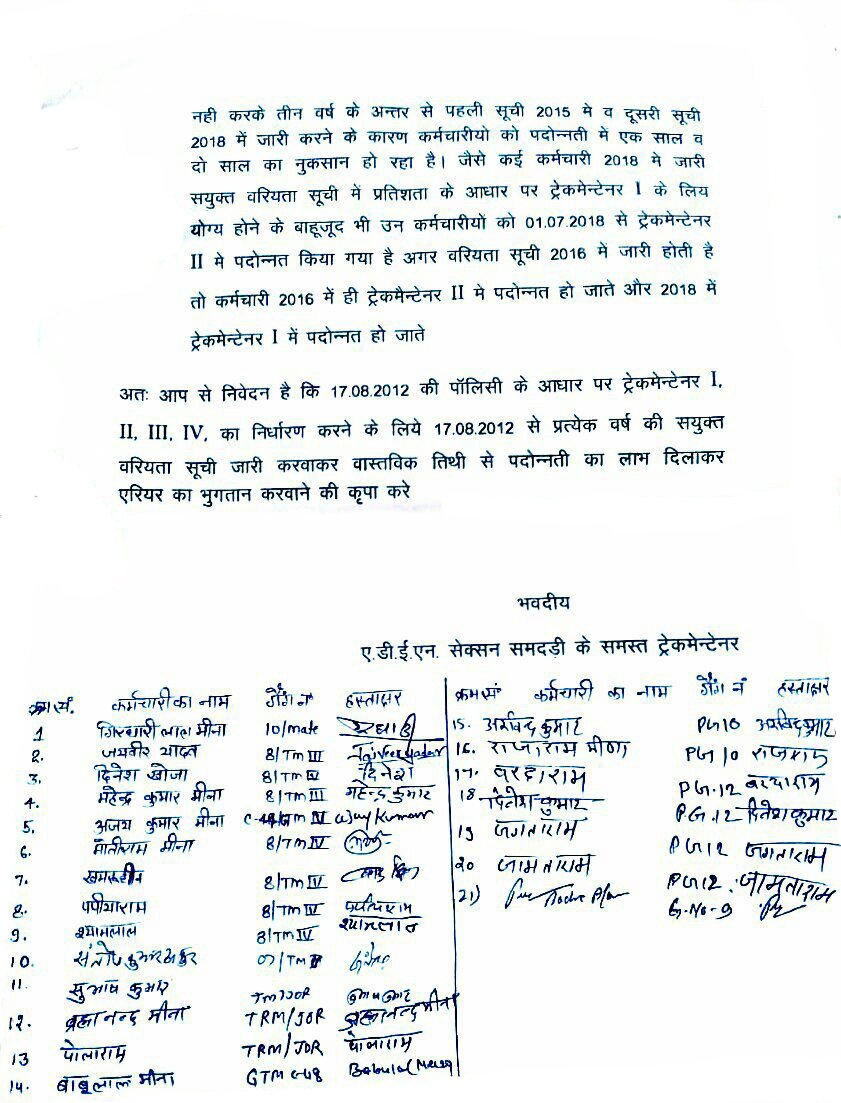 नही करके तीन वर्ष के अन्तर से पहली सूची 2015 मे व दूसरी सूची
2018 में जारी करने के कारण कर्मचारीयो को पदोन्नती में एक साल व
दो साल का नुकसान हो रहा है। जैसे कई कर्मचारी 2018 मे जारी
सयुक्त वरियता सूची में प्रतिशता के आधार पर ट्रेकमेन्टेनर I के लिय
योग्य होने के बाहूजूद भी उन कर्मचारीयों को 01.07.2018 से ट्रेकमेन्टेनर
II मे पदोन्नत किया गया है अगर वरियता सूची 2016 में जारी होती है
तो कर्मचारी 2016 में ही ट्रेकमैन्टेनर II मे पदोन्नत हो जाते और 2018 में
ट्रेकमेन्टेनर I में पदोन्नत हो जाते
अतः आप से निवेदन है कि 17.08.2012 की पॉलिसी के आधार पर ट्रेकमेन्टेनर I,
II, III, IV, का निर्धारण करने के लिये 17.08.2012 से प्रत्येक वर्ष की सयुक्त
वरियता सूची जारी करवाकर वास्तविक तिथी से पदोन्नती का लाभ दिलाकर
एरियर का भुगतान करवाने की कृपा करे
भवदीय
ए.डी.ई.एन. सेक्सन समदड़ी के समस्त ट्रेकमेन्टेनर
क्रम सं. कर्मचारी का नाम गैंग नं हस्ताक्षर
1 गिरधारी लाल मीना 10/mate
2. जयवीर यादव 8/TM III Jaiveer Yadav
3. दिनेश खोजा 8/TM III दिनेश
4. महेन्द्र कुमार मीना 8/TM III महेन्द्र कुमार
5. अजय कुमार मीना TM IV Ajay Kumar
6. मीना 8/TM IV
7. 8/TM IV
8. पपीयाराम 8/TM IV
9. श्यामलाल 8/TM IV श्यामलाल
10. संतोष कुमार
11. सुभाष कुमार TM/JOR
12. ब्रह्मानन्द मीना TRM/JOR ब्रह्मानन्द मीना
13 पोलाराम TRM/JOR पोलाराम
14. बाबूलाल मीना GTM Babulal Meena
क्रम सं कर्मचारी का नाम गैंग नं हस्ताक्षर
15. अरविन्द कुमार PG10 अरविंद कुमार
16. राजाराम मीणा PG 10 राजाराम
17. वरदाराम PG.12 वरदाराम
18 दिनेश कुमार PG.12 दिनेश कुमार
19 जगताराम PG12 जगताराम
20 जामताराम PG12. जामताराम
21) G.No-9